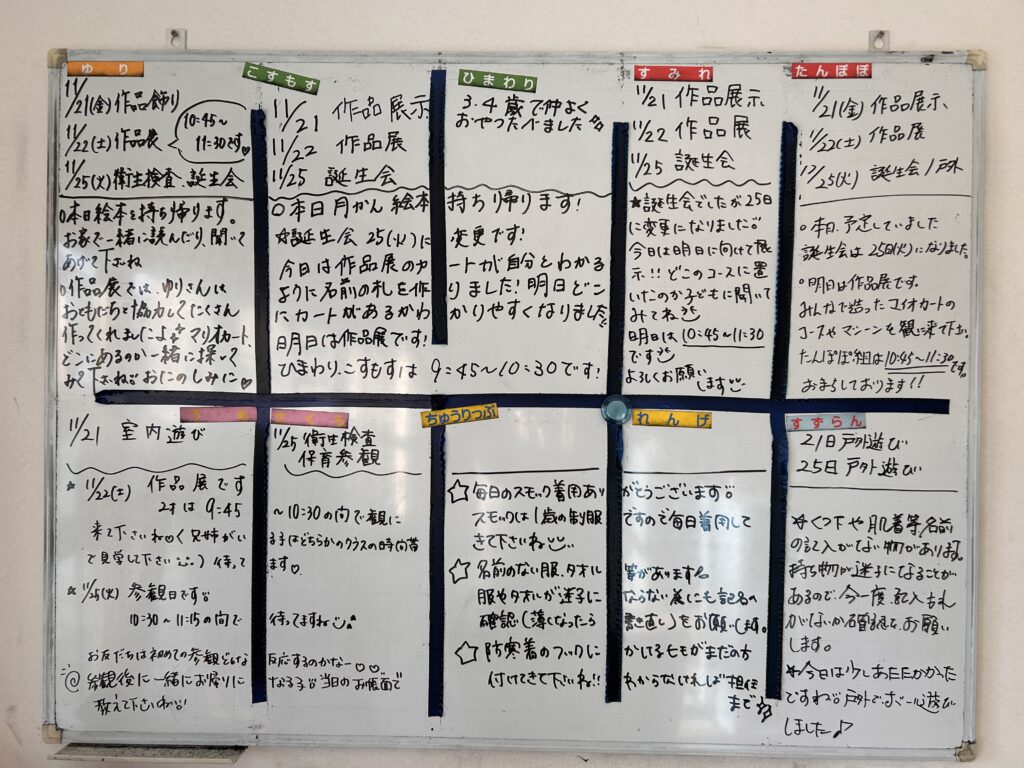 ゆり
11/21(金)作品飾り
11/22(土)作品展
10:45～
11:30です♡
11/25(火)衛生検査、誕生会
○本日絵本を持ち帰ります。
お家で一緒に読んだり、聞いて
あげて下さいね
○作品展では、ゆりさんは
おともだちと協力してたくさん
作ってくれましたよ マリオカート、
どこにあるのか一緒に探して
みて下さいね おたのしみに♡
こすもす
11/21 作品展示
11/22 作品展
11/25 誕生会
ひまわり
3.4歳で仲よく
おやつたべました
○本日月かん絵本持ち帰ります！
☆誕生会 25(火)に変更です！
今日は作品展のカートが自分とわかる
ように名前の札を作りました！明日どこ
にカートがあるかわかりやすくなりました
明日は作品展です！
ひまわり、こすもすは 9:45～10:30です！
すみれ
11/21 作品展示
11/22 作品展
11/25 誕生会
★誕生会でしたが25日
に変更になりました。
今日は明日に向けて展
示!! どこのコースに置
いたのか子どもに聞いて
みてね
明日は10:45～11:30
です
よろしくお願い
します
たんぽぽ
11/21(金) 作品展示
11/22(土) 作品展
11/25(火) 誕生会/戸外
○本日、予定していました
誕生会は25日(火)になりました。
○明日は作品展です。
みんなで造ったコイオカートの
コースやマシーンを観に来て下さい。
たんぽぽ組は10:45～11:30です。
おまちしております！！
11/21 室内遊び
★11/22(土) 作品展です
2才は9:45～10:30の間で観に
来て下さいね
で見学して下さい 待ってます♡
★11/25(火) 参観日です
10:30～11:15の間で待ってますね
お友だちは初めての参観どんな反応するのかなー♡♡
参観後に一緒にお帰りになる子 当日のお帳面で
教えて下さいね
11/25 衛生検査
保育参観
ちゅうりっぷ
れんげ
☆毎日のスモック着用ありがとうございます
スモックは1歳の制服ですので毎日着用して
きて下さいね
☆名前のない服、タオル等があります
服やタオルが迷子にならない為にも記名の
確認(薄くなったら書き直し)をお願いします。
★防寒着のフックにかけるヒモがまだの方
付けてきて下さいね!! わからないければ担任
まで
すずらん
21日 戸外遊び
25日 戸外遊び
☆くつ下や肌着等名前
の記入がない物があります。
持ち物が迷子になることが
あるので、今一度、記入もれ
がないか確認をお願い
します。
☆今日は少しあたたかかった
ですね 戸外でいっぱい遊び
しました♪